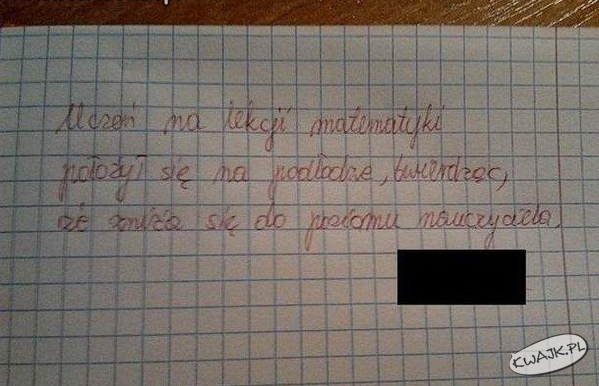 Uczeń na lekcji matematyki
położył się na podłodze, twierdząc,
że zniża się do poziomu nauczyciela.
KWAJK.PL